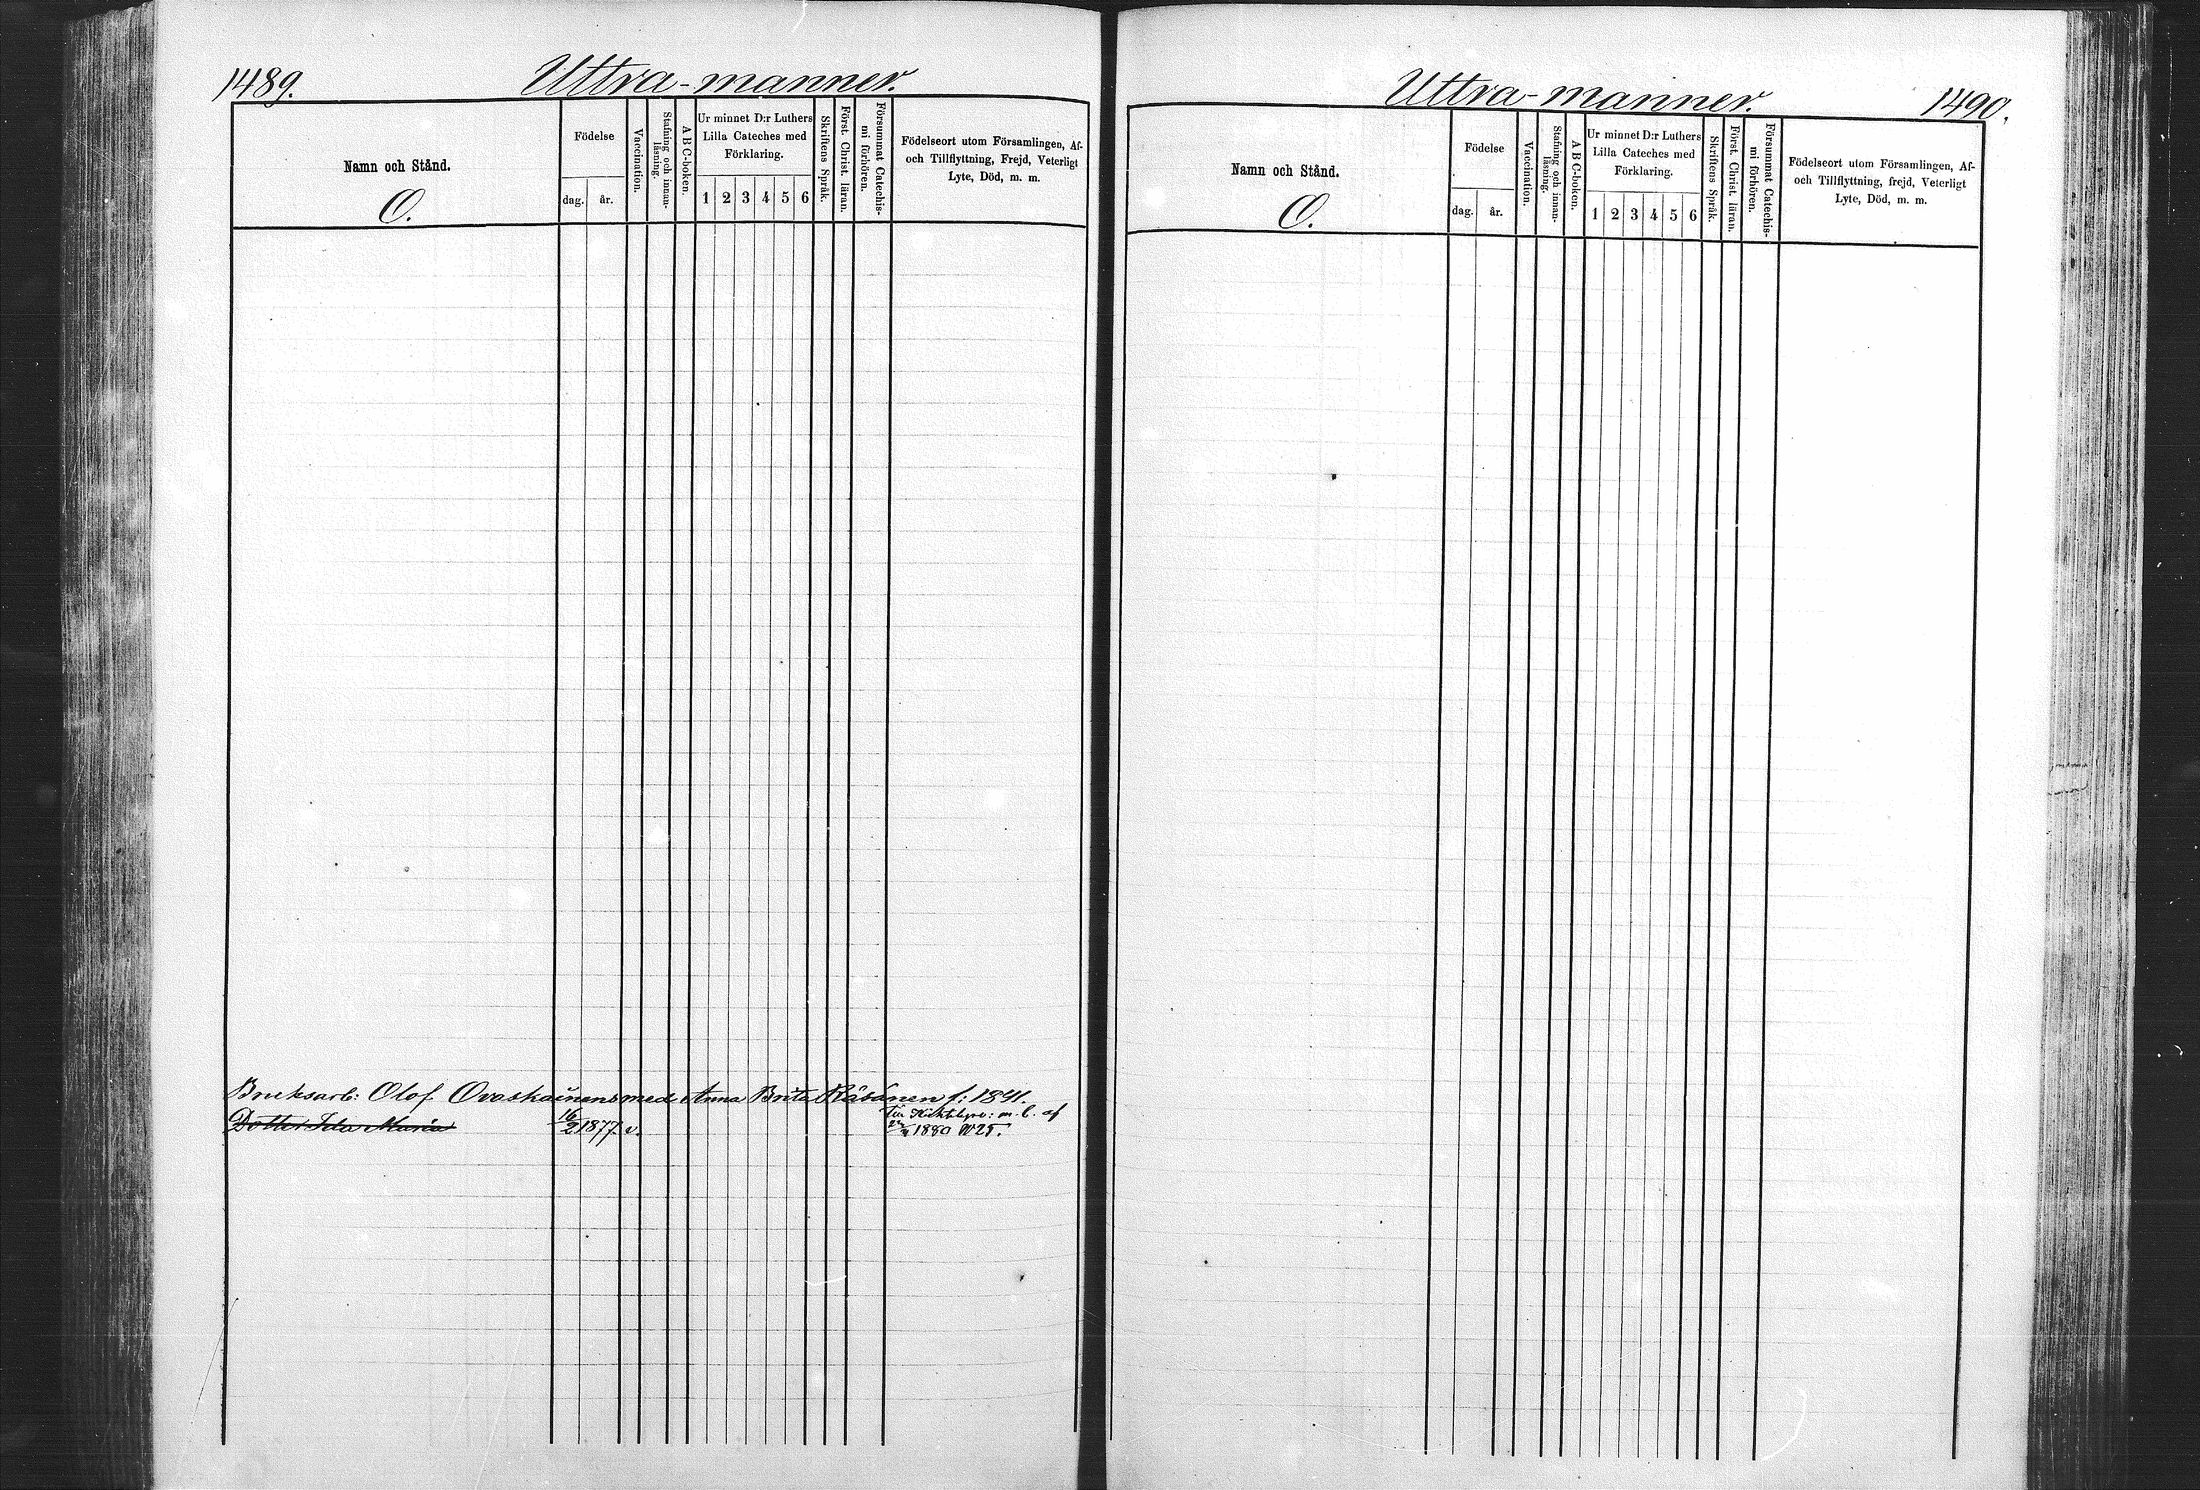 1489.
Uttra-manner.
Namn och Stånd.
O.
Födelse
dag.
år.
Vaccination.
Stafning och innan-
läsning.
A B C-boken.
Ur minnet D:r Luthers
Lilla Cateches med
Förklaring.
1 2 3 4 5 6
Skriftens Språk.
Först. Christ. läran.
Försummat Catechis-
mi förhören.
Födelseort utom Församlingen, Af-
och Tillflyttning, Frejd, Veterligt
Lyte, Död, m. m.
Bruksarb: Olof Ovaskainens med Anna Brita Räsänen f: 1841.
Dotter Ida Maria 16/2 1877. v. m. b. af
1880 N 25.
Uttra-manner.
1490.
Namn och Stånd.
O.
Födelse
dag.
år.
Vaccination.
Stafning och innan-
läsning.
A B C-boken.
Ur minnet D:r Luthers
Lilla Cateches med
Förklaring.
1 2 3 4 5 6
Skriftens Språk.
Först. Christ. läran.
Försummat Catechis-
mi förhören.
Födelseort utom Församlingen, Af-
och Tillflyttning, frejd, Veterligt
Lyte, Död, m. m.